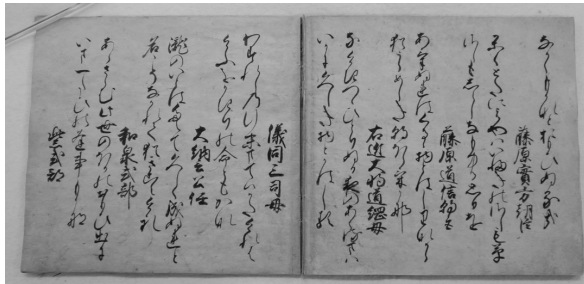 なかくもかなとおもひぬるかな
藤原實方朝臣
かくとたにえやはいふきのさしも草
さしもしらしなもゆるおもひを
藤原道信朝臣
あけぬれはくるゝ物とはしりなから
猶うらめしき朝ほらけ哉
右近大将道綱母
なけきつゝひとりぬる夜のあくるまは
いかにひさしき物とかはしる
儀同三司母
わすれしの行末まてはかたけれは
けふをかきりの命ともかな
大納言公任
瀧の音はたえて久しく成ぬれと
名こそなかれて猶きこえけれ
和泉式部
あらさらむ此世のほかのおもひ出に
いま一たひの逢事も哉
紫式部